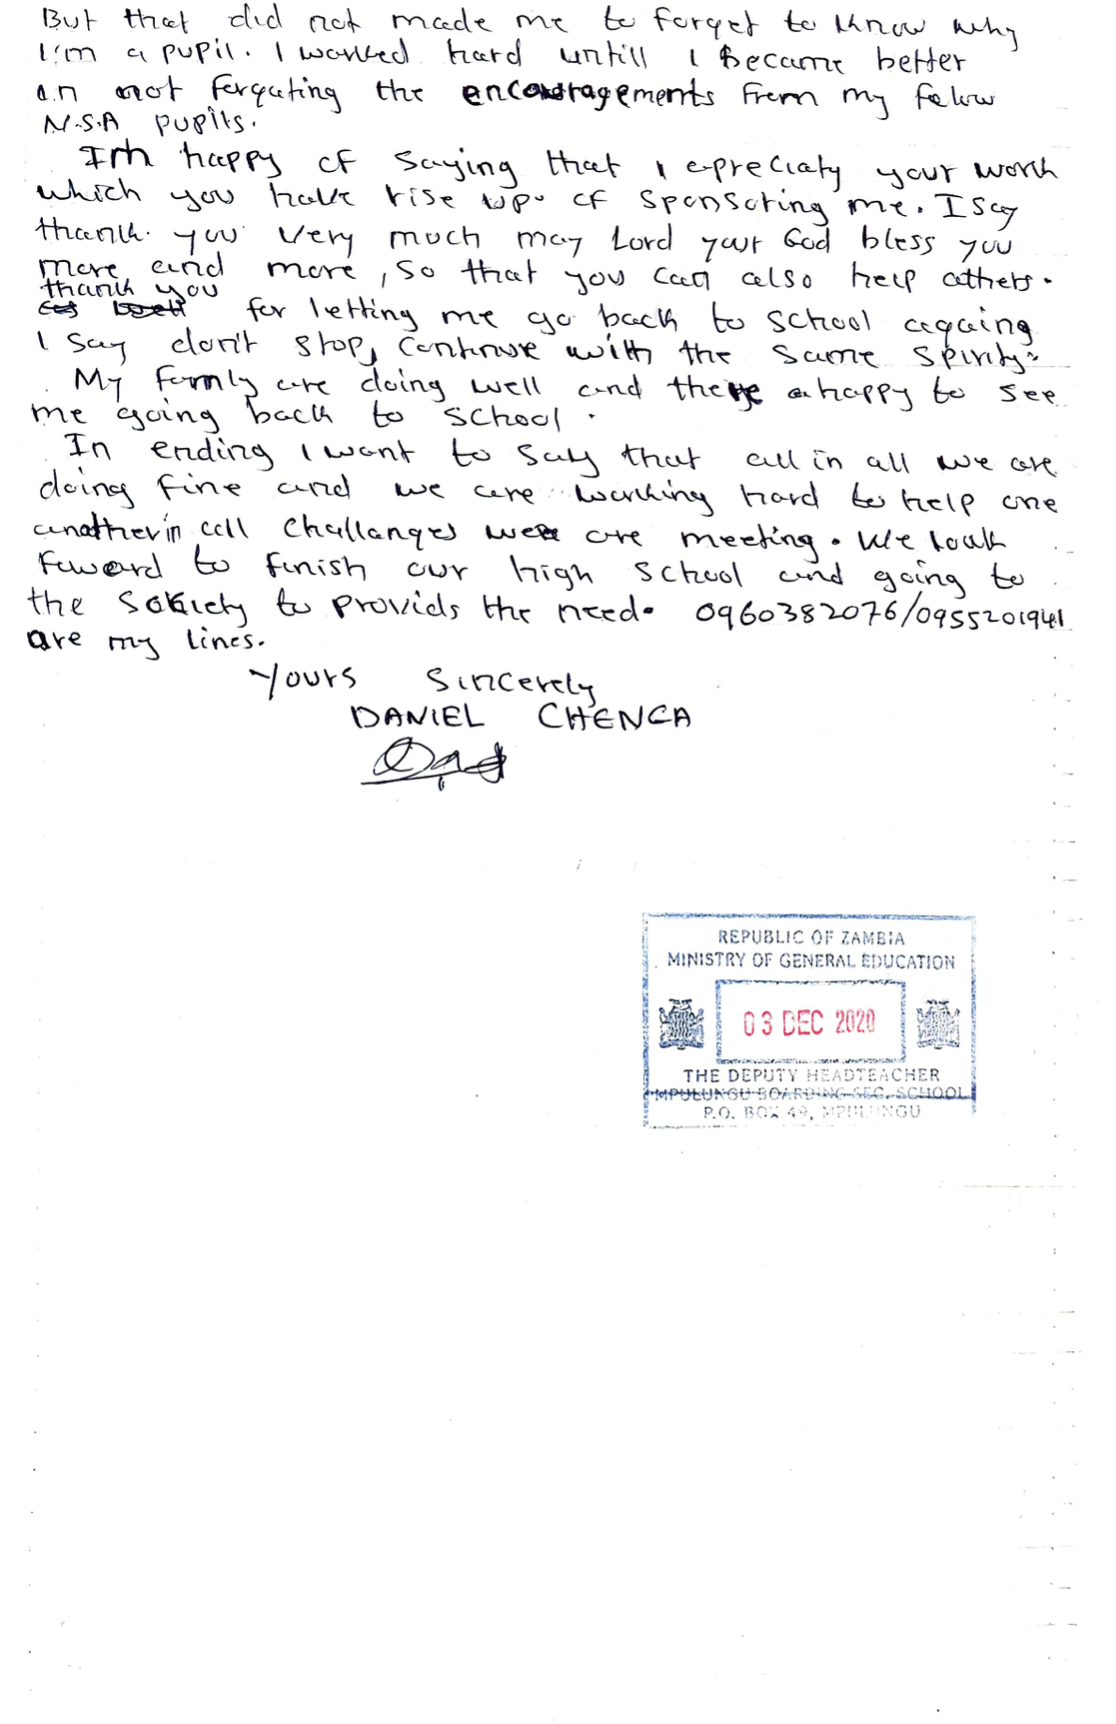 But that did not made me to forget to know why
I'm a pupil. I worked hard untill I became better
an not forgating the encouragements from my felow
N.S.A pupils.
I'm happy of saying that I epreciaty your worth
which you have rise up. of sponsoring me. I say
thank you very much may Lord your God bless you
more and more, so that you can also help others.
thank you
for letting me go back to school againg
I say don't stop, continue with the same spirity.
My famly are doing well and there a happy to see
me going back to school.
In ending I want to say that all in all we are
doing fine and we are working hard to help one
another in all challanges we are meeting. We look
foward to finish our high school and going to
the society to provids the need. 0960382076/0955201941
are my lines.
Yours Sincerely
DANIEL CHENGA
REPUBLIC OF ZAMBIA
MINISTRY OF GENERAL EDUCATION
03 DEC 2020
THE DEPUTY HEADTEACHER
MPULUNGU BOARDING SEC. SCHOOL
P.O. BOX 49, MPULUNGU